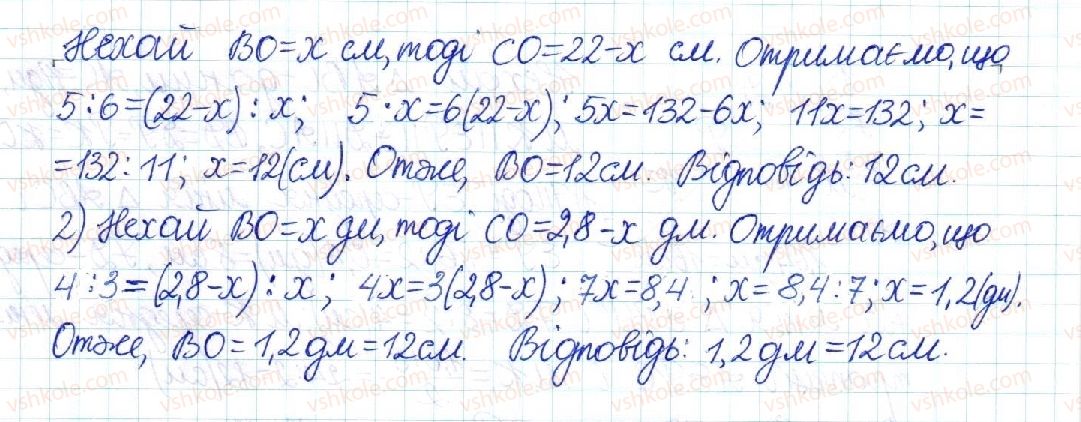 Нехай BO=x см, тоді CO=22-x см. Отримаємо, що
5:6=(22-x):x; 5·x=6(22-x); 5x=132-6x; 11x=132; x=
=132:11; x=12(см). Отже, BO=12см. Відповідь: 12см.
2) Нехай BO=x дм, тоді CO=2,8-x дм. Отримаємо, що
4:3=(2,8-x):x; 4x=3(2,8-x); 7x=8,4; x=8,4:7; x=1,2(дм).
Отже, BO=1,2дм=12см. Відповідь: 1,2дм=12см.